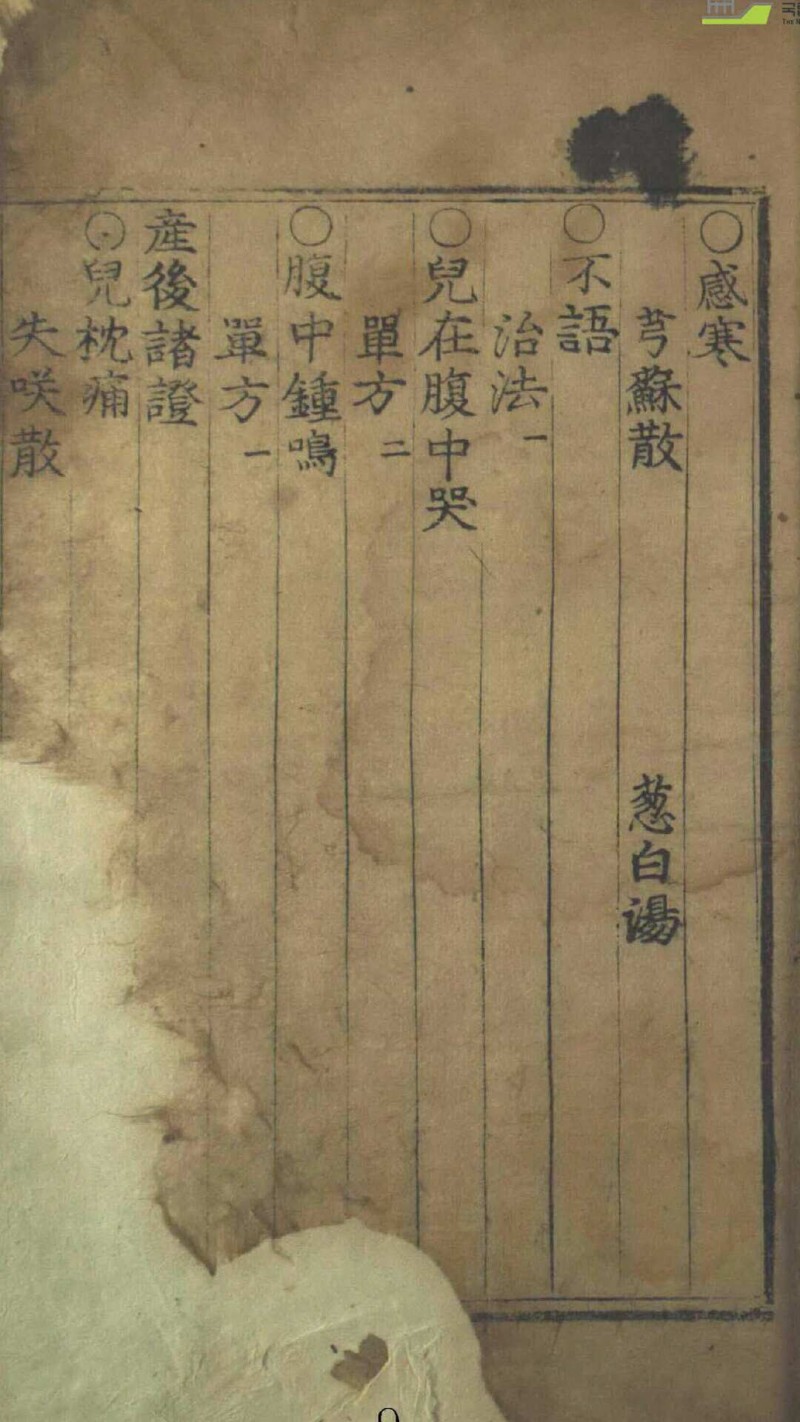 〇感寒
芎蘇散 葱白湯
〇不語
治法一
〇兒在腹中哭
單方二
〇腹中鍾鳴
單方一
産後諸證
〇兒枕痛
失咲散